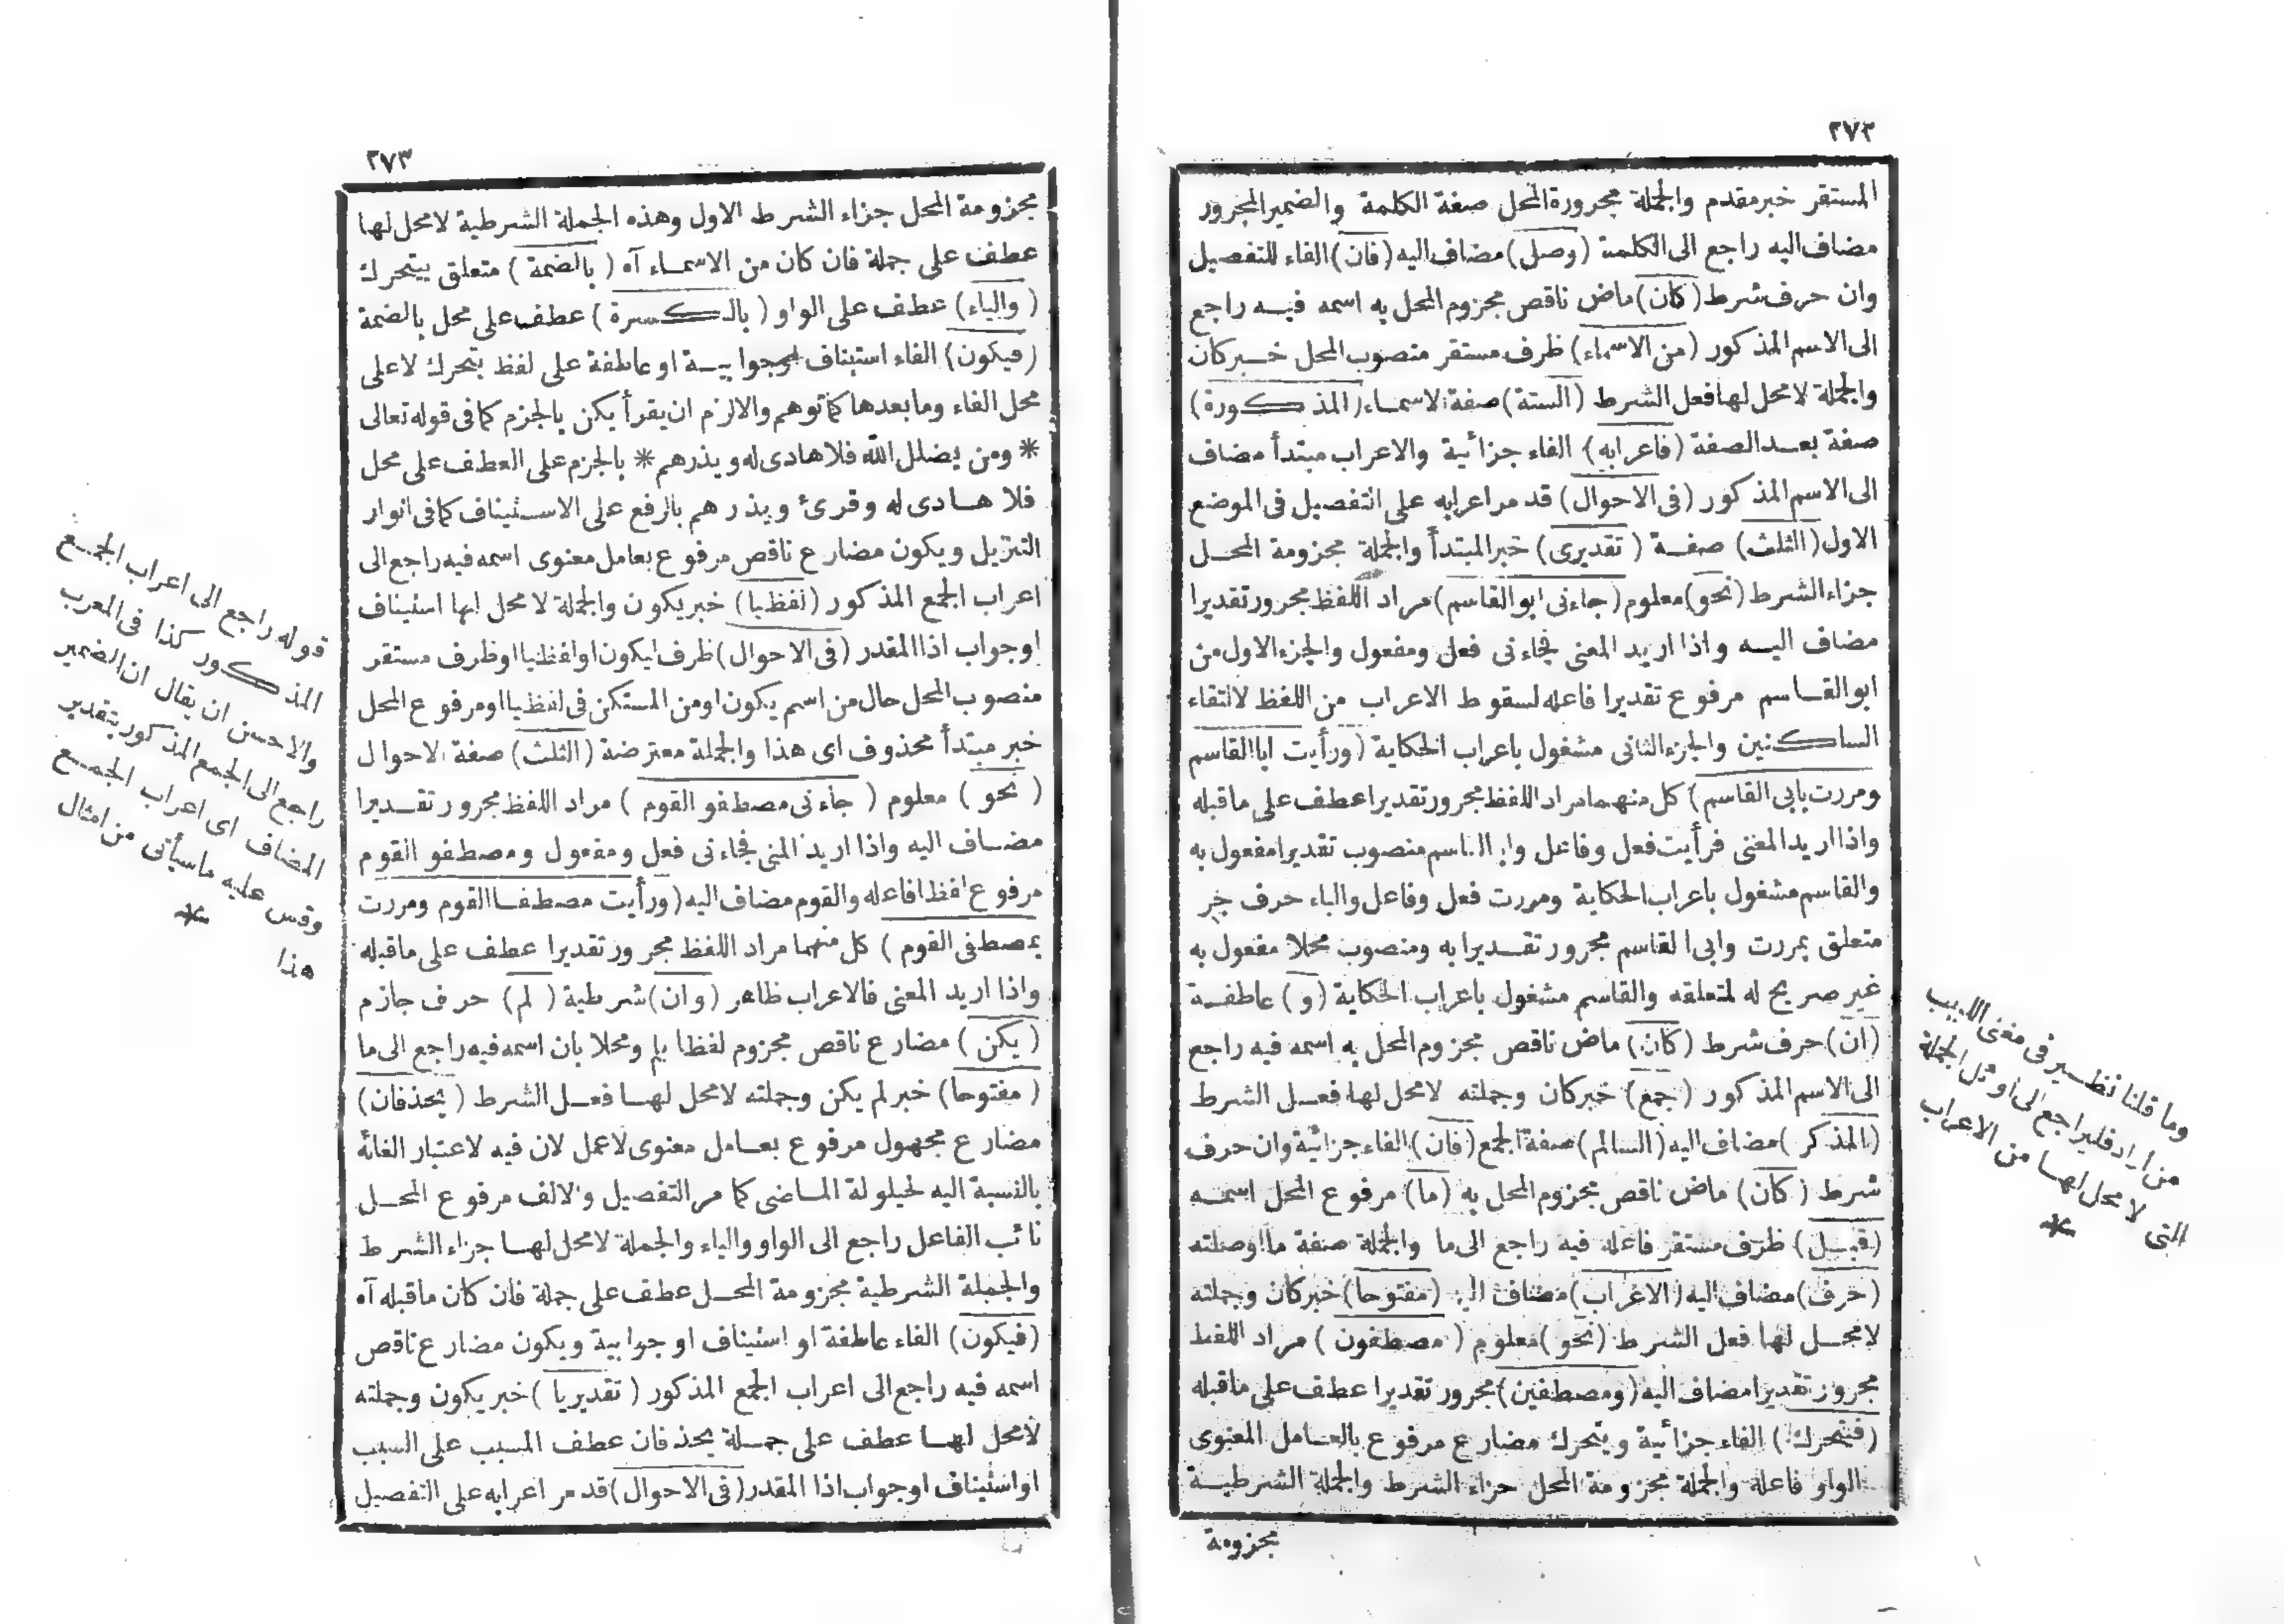 ٢٧٢
المستقر خبر مقدم والجملة مجرورة المحل صفة الكلمة والضمير المجرور
مضاف اليه راجع الى الكلمة (وصل) مضاف اليه (فان) الفاء للتفصيل
وان حرف شرط (كان) ماض ناقص مجزوم المحل به اسمه فيه راجع
الى الاسم المذكور (من الاسماء) ظرف مستقر منصوب المحل خبر كان
والجملة لا محل لها فعل الشرط (الستة) صفة الاسماء (المذكورة)
صفة بعد الصفة (فاعرابه) الفاء جزائية والاعراب مبتدأ مضاف
الى الاسم المذكور (فى الاحوال) قد مر اعرابه على التفصيل فى الموضع
الاول (الثلث) صفة (تقديرى) خبر المبتدأ والجملة مجزومة المحل
جزاء الشرط (نحو) معلوم (جاءنى ابو القاسم) مراد اللفظ مجرور تقديرا
مضاف اليه واذا اريد المعنى فجاءنى فعل ومفعول والجزء الاول من
ابو القاسم مرفوع تقديرا فاعله لسقوط الاعراب من اللفظ لالتقاء
الساكنين والجزء الثانى مشغول باعراب الحكاية (ورأيت ابا القاسم
ومررت بابى القاسم) كل منهما مراد اللفظ مجرور تقديرا عطف على ما قبله
واذا اريد المعنى فرأيت فعل وفاعل وابا القاسم منصوب تقديرا مفعول به
والقاسم مشغول باعراب الحكاية ومررت فعل وفاعل والباء حرف جر
متعلق بمررت وابى القاسم مجرور تقديرا به ومنصوب محلا مفعول به
غير صريح له لمتعلقه والقاسم مشغول باعراب الحكاية (و) عاطفة
(ان) حرف شرط (كان) ماض ناقص مجزوم المحل به اسمه فيه راجع
الى الاسم المذكور (جمع) خبر كان وجملته لا محل لها فعل الشرط
(المذكر) مضاف اليه (السالم) صفة الجمع (فان) الفاء جزائية وان حرف
شرط (كان) ماض ناقص مجزوم المحل به (ما) مرفوع المحل اسمه
(قبل) ظرف مستقر فاعله فيه راجع الى ما والجملة صفة ما اوصلته
(حرف) مضاف اليه (الاعراب) مضاف اليه (مفتوحا) خبر كان وجملته
لا محل لها فعل الشرط (نحو) معلوم (مصطفون) مراد اللفظ
مجرور تقديرا مضاف اليه (ومصطفين) مجرور تقديرا عطف على ما قبله
(فيتحرك) الفاء جزائية ويتحرك مضارع مرفوع بالعامل المعنوى
الواو فاعله والجملة مجزومة المحل جزاء الشرط والجملة الشرطية
مجزومة
وما قلنا نظير فى مغنى اللبيب
من اراد فليراجع الى اوئل الجملة
التى لا محل لها من الاعراب
*
٢٧٣
مجزومة المحل جزاء الشرط الاول وهذه الجملة الشرطية لا محل لها
عطف على جملة فان كان من الاسماء آه (بالضمة) متعلق بيتحرك
(والياء) عطف على الواو (بالكسرة) عطف على محل بالضمة
(فيكون) الفاء استيناف او جوابية او عاطفة على لفظ يتحرك لا على
محل الفاء وما بعدها كما توهم والا لزم ان يقرأ يكن بالجزم كما فى قوله تعالى
* ومن يضلل الله فلا هادى له ويذرهم * بالجزم على العطف على محل
فلا هادى له وقرئ ويذرهم بالرفع على الاستيناف كما فى انوار
التنزيل ويكون مضارع ناقص مرفوع بعامل معنوى اسمه فيه راجع الى
اعراب الجمع المذكور (لفظيا) خبر يكون والجملة لا محل لها استيناف
او جواب اذا المقدر (فى الاحوال) ظرف ليكون او لفظيا او ظرف مستقر
منصوب المحل حال من اسم يكون او من المستكن فى لفظيا او مرفوع المحل
خبر مبتدأ محذوف اى هذا والجملة معترضة (الثلث) صفة الاحوال
(نحو) معلوم (جاءنى مصطفو القوم) مراد اللفظ مجرور تقديرا
مضاف اليه واذا اريد المعنى فجاءنى فعل ومفعول ومصطفو القوم
مرفوع لفظا فاعله والقوم مضاف اليه (ورأيت مصطفا القوم ومررت
بمصطفى القوم) كل منهما مراد اللفظ مجرور تقديرا عطف على ما قبله
واذا اريد المعنى فالاعراب ظاهر (وان) شرطية (لم) حرف جازم
(يكن) مضارع ناقص مجزوم لفظا بلم ومحلا بان اسمه فيه راجع الى ما
(مفتوحا) خبر لم يكن وجملته لا محل لها فعل الشرط (يحذفان)
مضارع مجهول مرفوع بعامل معنوى لا عمل لان فيه لاعتبار الغائه
بالنسبة اليه لحيلولة الماضى كما مر التفصيل والالف مرفوع المحل
نائب الفاعل راجع الى الواو والياء والجملة لا محل لها جزاء الشرط
والجملة الشرطية مجزومة المحل عطف على جملة فان كان ما قبله آه
(فيكون) الفاء عاطفة او استيناف او جوابية ويكون مضارع ناقص
اسمه فيه راجع الى اعراب الجمع المذكور (تقديريا) خبر يكون وجملته
لا محل لها عطف على جملة يحذفان عطف المسبب على السبب
او استيناف او جواب اذا المقدر (فى الاحوال) قد مر اعرابه على التفصيل
قوله راجع الى اعراب الجمع
المذكور كذا فى المعرب
والاحسن ان يقال ان الضمير
راجع الى الجمع المذكور بتقدير
المضاف اى اعراب الجمع
وقس عليه ما سيأتى من امثال
هذا *